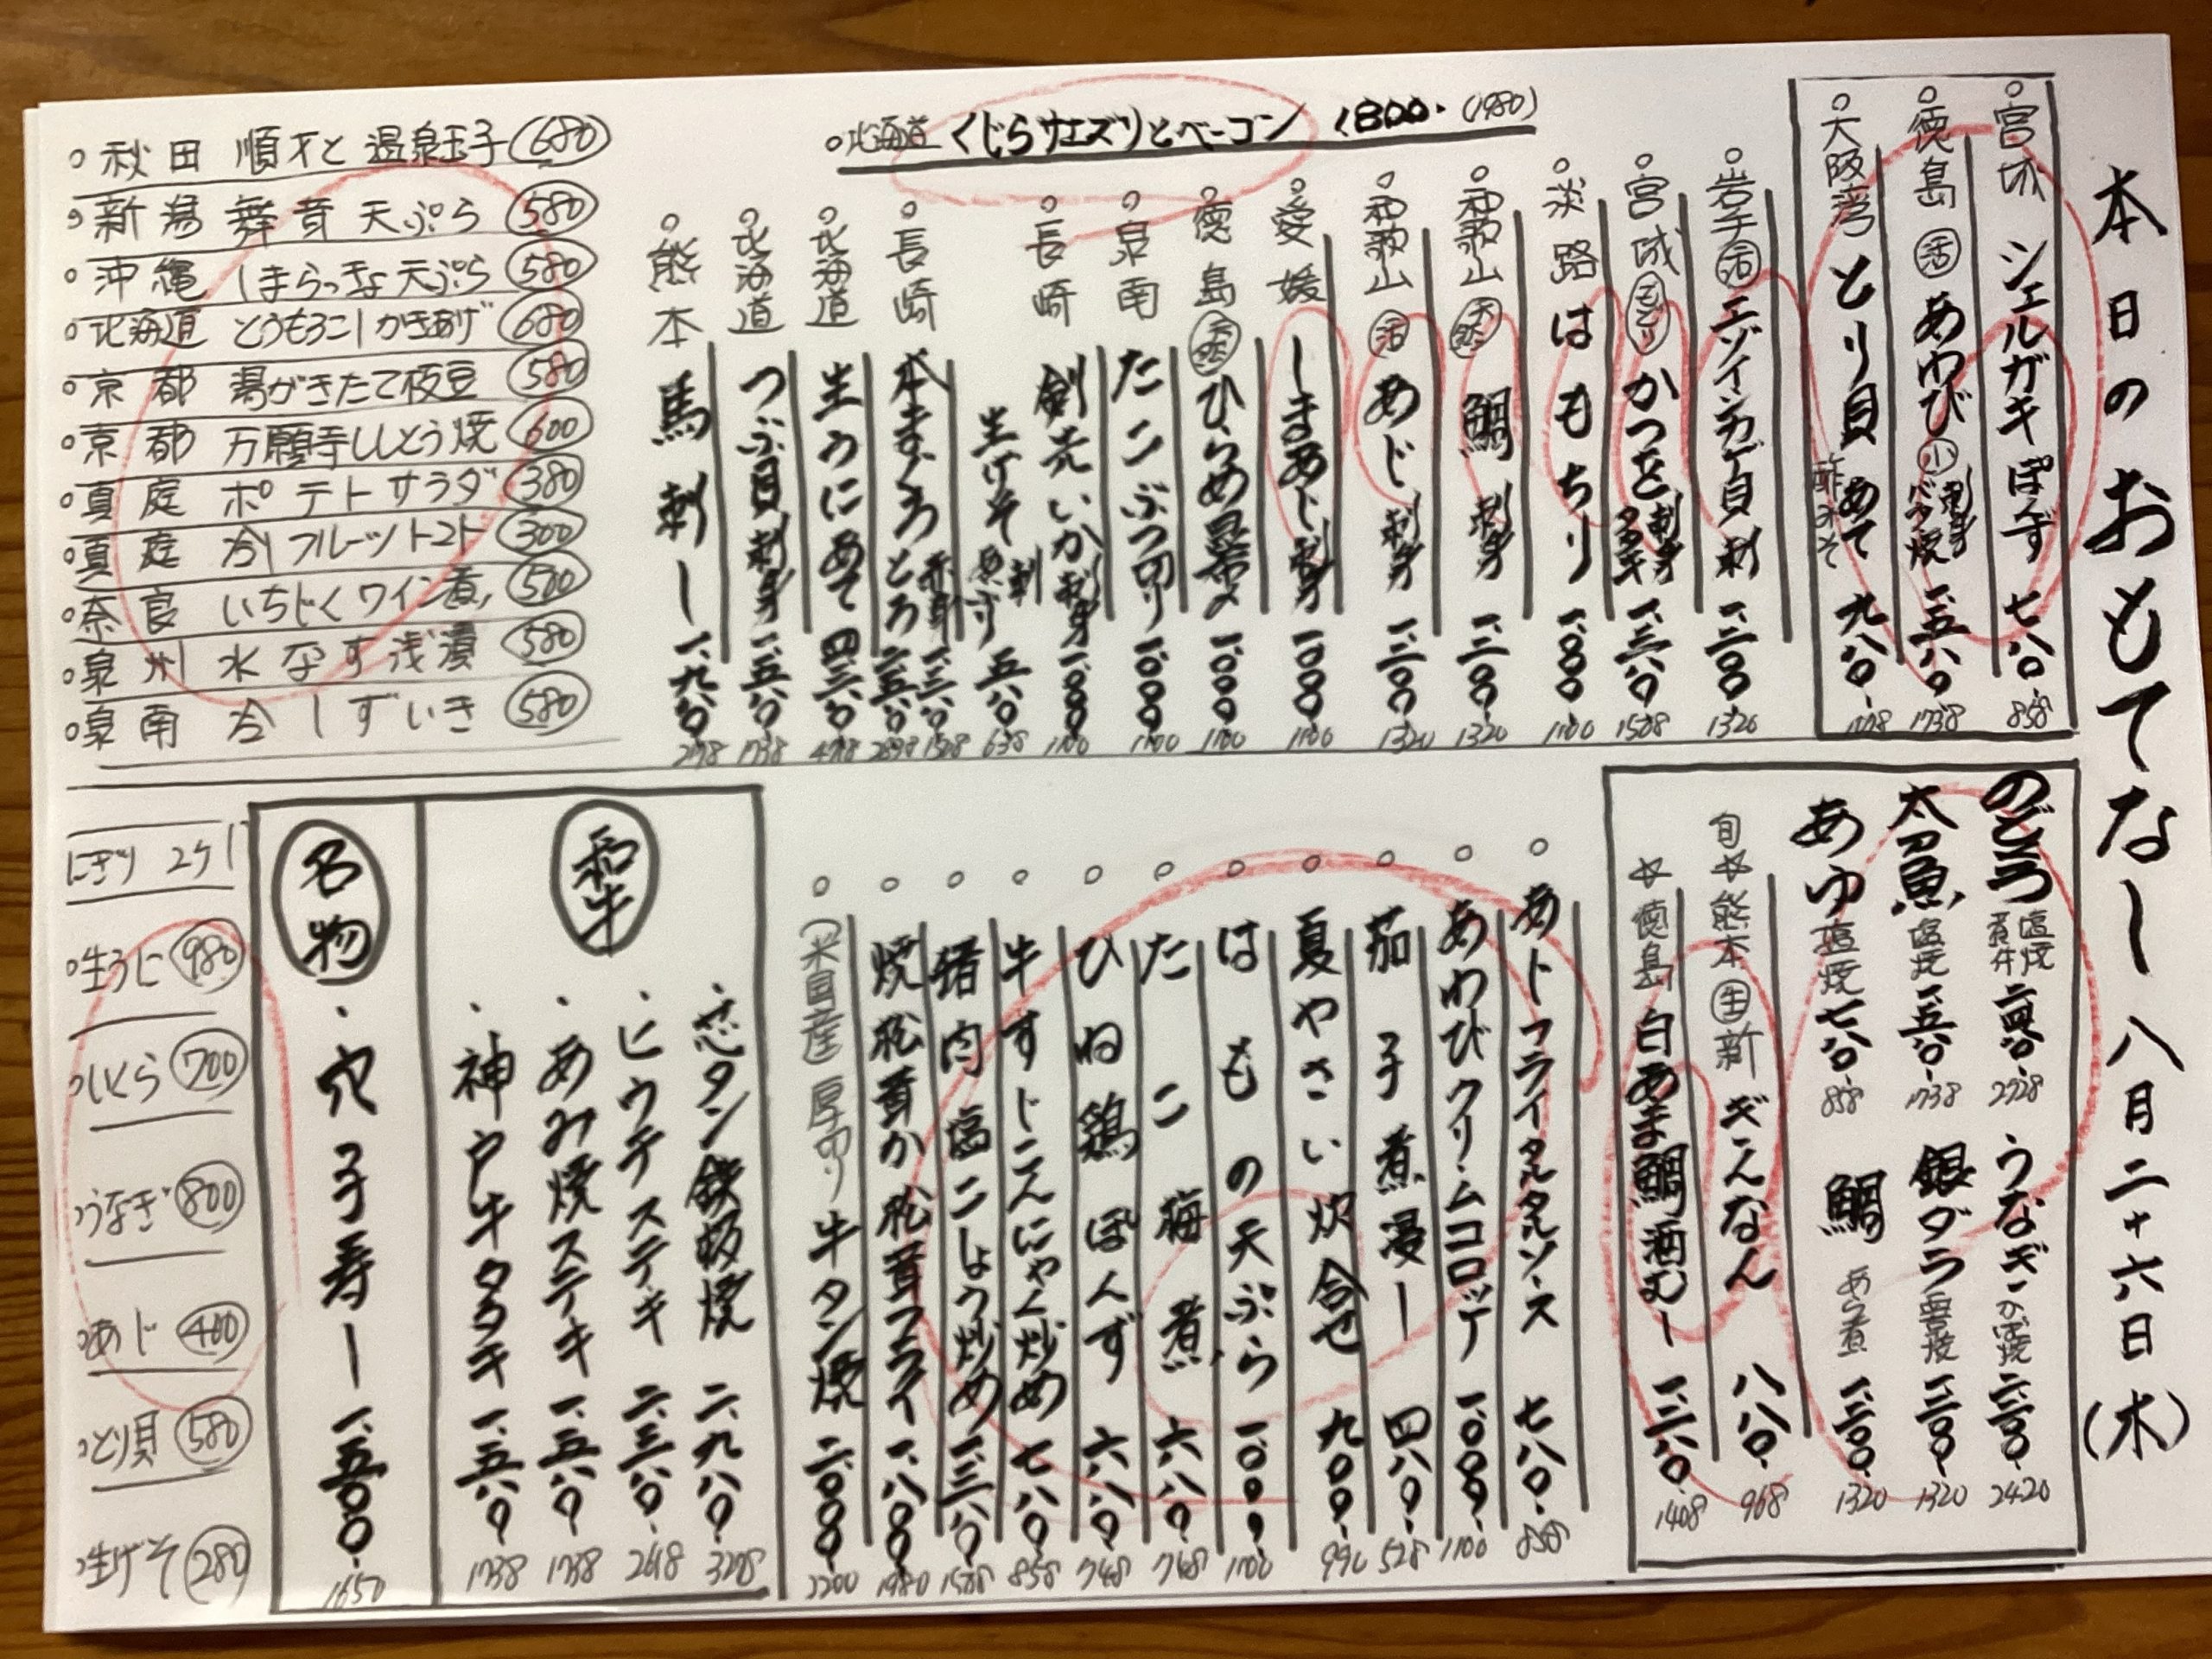 本日のおもてなし 八月二十六日(水)
○宮城 シェルガキぽんず 七八〇 858
○徳島 活 あわび 小 刺身 バタ焼 一、五八〇 1738
○大阪湾 とり貝 あて 酢みそ 九八〇
○岩手 活 エゾイシカゲ貝 刺 一、二〇〇 1320
○宮城 もどり かつを 刺身 タタキ 一、三八〇 1508
○淡路 はも ちり 一、〇〇〇 1100
○和歌山 天然 鯛 刺身 一、二〇〇 1320
○和歌山 活 あじ 刺身 一、二〇〇 1320
○愛媛 しまあじ 刺身 一、〇〇〇 1100
○徳島 天然 ひらめ昆布〆 一、〇〇〇 1100
○泉南 たこぶつ切り 一、〇〇〇 1100
○長崎 剣先いか 刺身 一、〇〇〇 1100
生げそ 刺 五八〇 638
○長崎 本まぐろ 赤身 一、三八〇 とろ
○北海道 生うにあて
○北海道 つぶ貝 刺身 一、五八〇 1738
○熊本 馬刺し 一、九八〇
○北海道 くじらサエズリとベーコン 1800. (1980)
○秋田 順才と温泉玉子 680
○新潟 舞茸天ぷら 580
○沖縄 しまらっきょ天ぷら 580
○北海道 とうもろこしかきあげ 680
○京都 湯がきたて枝豆 580
○京都 万願寺ししとう焼 600
○真庭 ポテトサラダ 380
○真庭 冷フルーツトマト 300
○奈良 いちじくワイン煮 500
○泉州 水なす浅漬 580
○泉南 冷しずいき 580
のどぐろ 塩焼 煮付 2728
うなぎ かば焼 二、二〇〇 2420
太刀魚 塩焼 一、五八〇 1738
銀ダラ 西京焼 一、二〇〇 1320
あゆ 塩焼 七八〇 858
鯛 あら煮 一、二〇〇 1320
旬☆熊本 生 新ぎんなん 八八〇 968
☆徳島 白あま鯛酒むし 一、二八〇 1408
○あじフライタルタルソース 七八〇 858
○あわびクリームコロッケ 一、〇〇〇 1100
○茄子煮浸し 四八〇 528
○夏やさい炊合せ 九〇〇 990
○はもの天ぷら 一、〇〇〇 1100
○たこ梅煮 六八〇 748
○ひね鶏ぽんず 六八〇 748
○牛すじこんにゃく炒め 七八〇 858
○猪肉塩こしょう炒め 一、三八〇
○焼松茸か松茸フライ 一、八〇〇 1980
○(米国産)厚切り牛タン焼 二、〇〇〇 2200
和牛
・芯タン鉄板焼 二、九八〇 3278
・ヒウチステーキ 二、三八〇 2618
・あみ焼ステーキ 一、五八〇 1738
・神戸牛タタキ 一、五八〇 1738
名物
・穴子寿し 一、五〇〇 1650
にぎり 2ケ
○生うに 980
○いくら 700
○うなぎ 800
○あじ 400
○とり貝 580
○生げそ 280